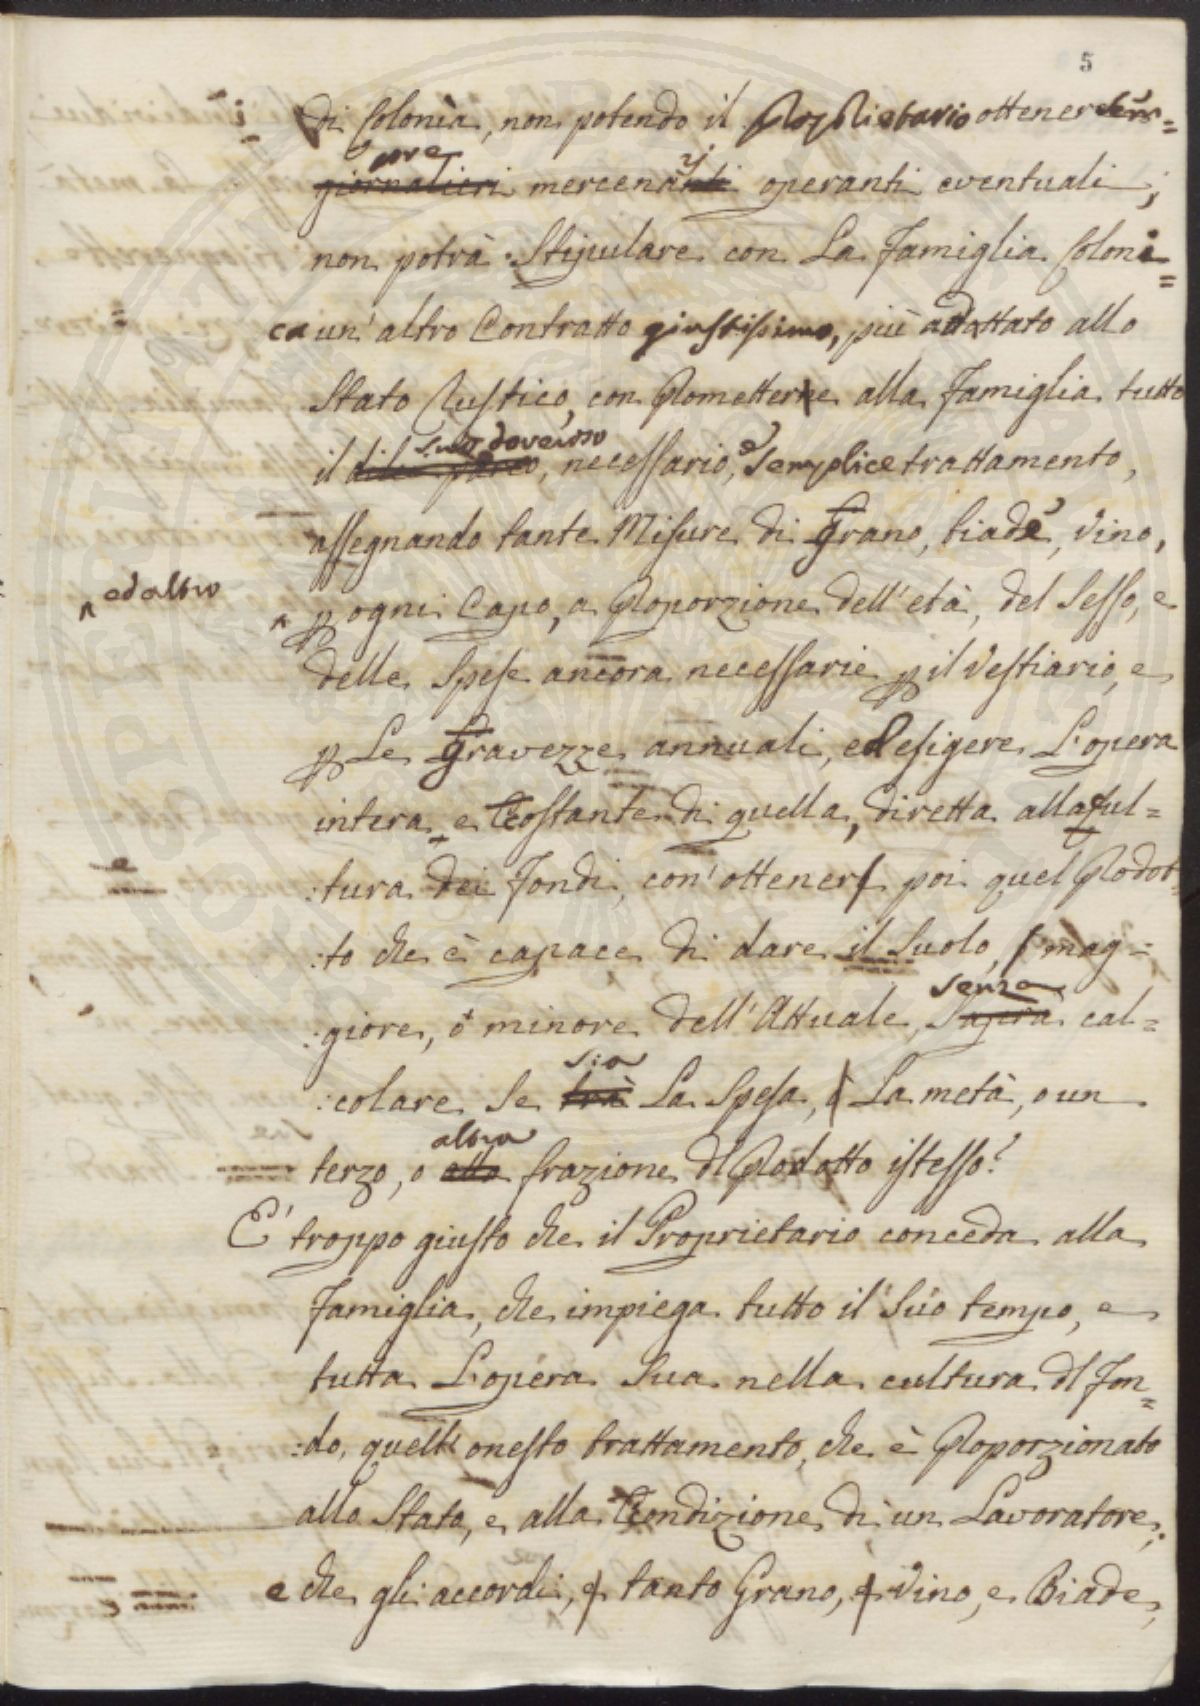 5
di Colonìa, non potendo il Proprietario ottener sem=
pre
giornalieri mercenarj operanti eventuali;
non potrà Stipulare con La Famiglia Coloni=
ca un'altro Contratto giustissimo, più adattato allo
Stato Rustico, con Prometter̶e alla Famiglia tutto
suo doveroso
il necessario, e semplice trattamento,
assegnando tante Misure di Grano, biade, vino,
ed altro
p ogni Capo, a Proporzione dell'età, del Sesso, e
delle Spese ancora necessarie p il Vestiario, e
p Le Gravezze annuali, ed esigere L'opera
intera, e Costante di quella, diretta alla Cul=
:tura dei Fondi, con' ottener poi quel Prodot=
:to che è capace di dare il Suolo, mag=
senza
:giore, o minore dell'Attuale, Sapera cal=
sia
:colare se trà La Spesa, o La metà, o un
altra
terzo, o alla frazione dl Prodotto istesso?
E' troppo giusto che il Proprietario conceda alla
Famiglia, che impiega tutto il Suo tempo, e
tutta L'opera Sua nella cultura dl Fon=
:do, quell' onesto trattamento, che è Proporzionato
allo Stato, e alla Condizione di un Lavoratore;
e che gli accordi, e tanto Grano, e vino, e Biade,